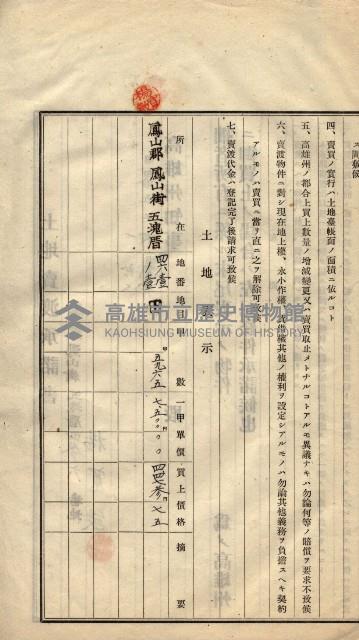 四、賣買ノ實行ハ土地臺帳面ノ面積ニ依ルコト
五、高雄州ノ都合上買上數量ノ增減變更又ハ賣買取止メトナルコトアルモ異議ナキハ勿論何等ノ賠償ヲ要求不致候
六、賣渡物件ニ對シ現在地上權、永小作權、賃借權其他ノ權利ヲ設定シアルモノハ勿論其他義務ヲ負擔スヘキ契約
アルモノハ賣買ニ當リ直ニ之ヲ解除可致候
七、賣渡代金ハ登記完了後請求可致候
土地表示
所在 地番 地目 甲數 一甲單價 買上價格 摘要
鳳山郡鳳山街五塊厝 四六壹ノ壹 田 五九六五 七五〇〇〇〇 四四七參七五
高雄市立歷史博物館
KAOHSIUNG MUSEUM OF HISTORY